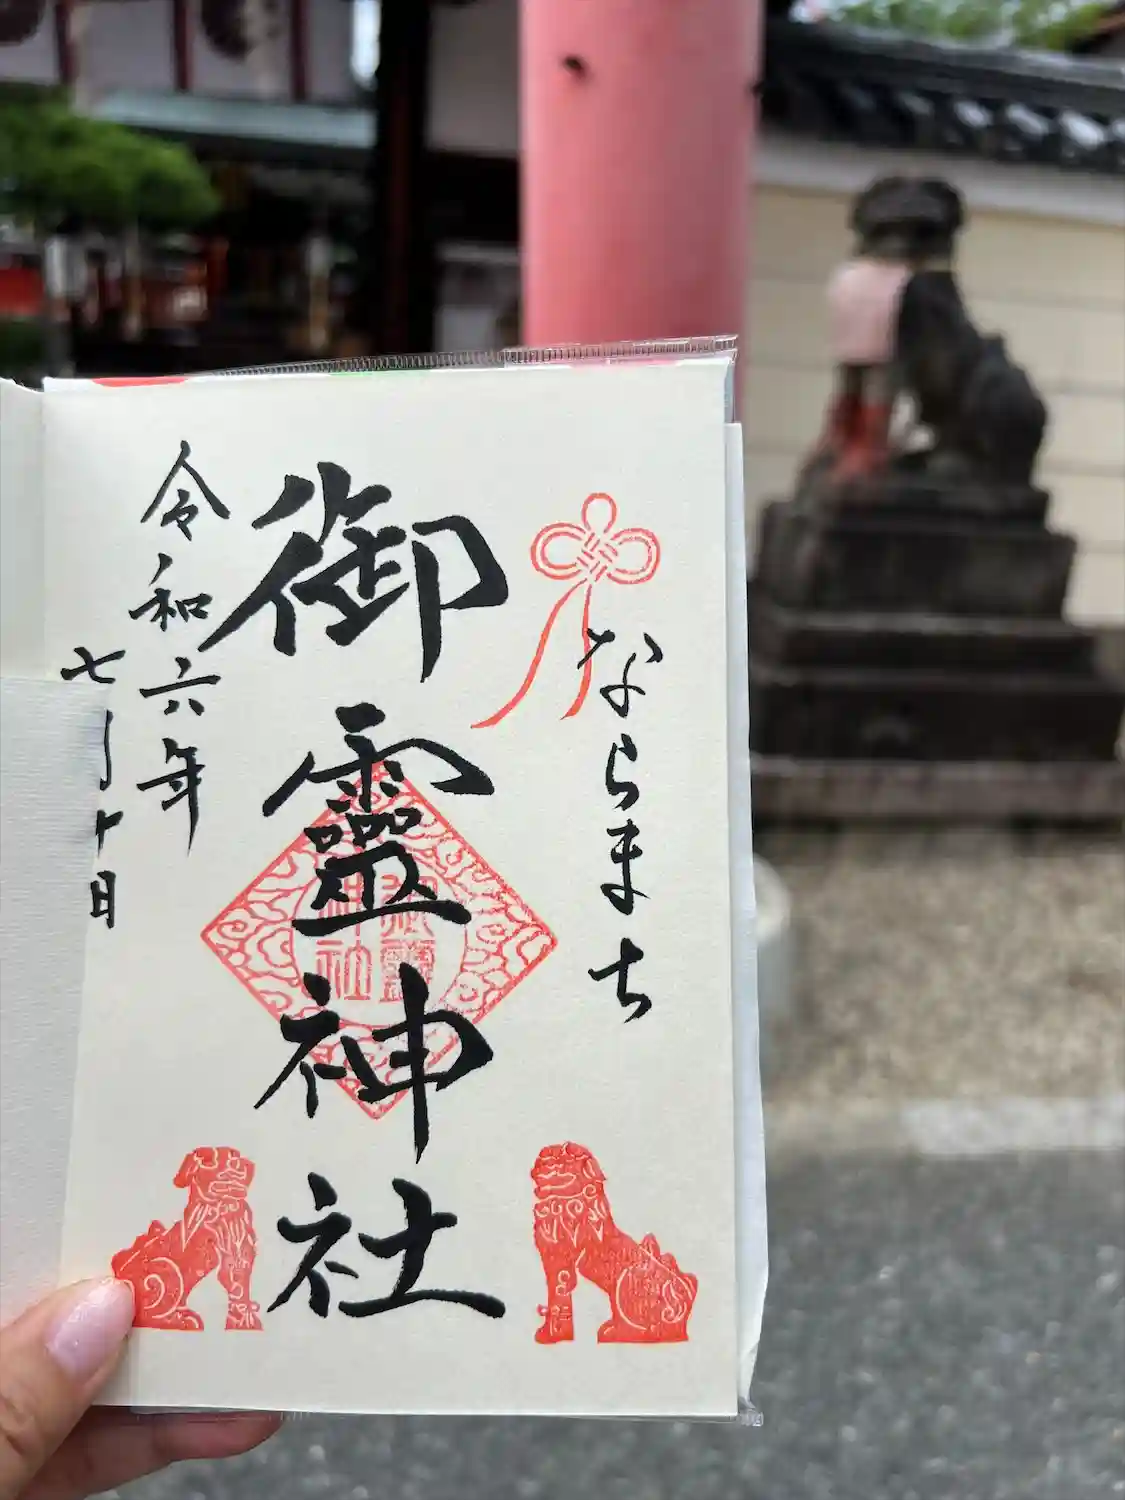 ならまち
御靈神社
御靈
神社
令和六年
七月十日